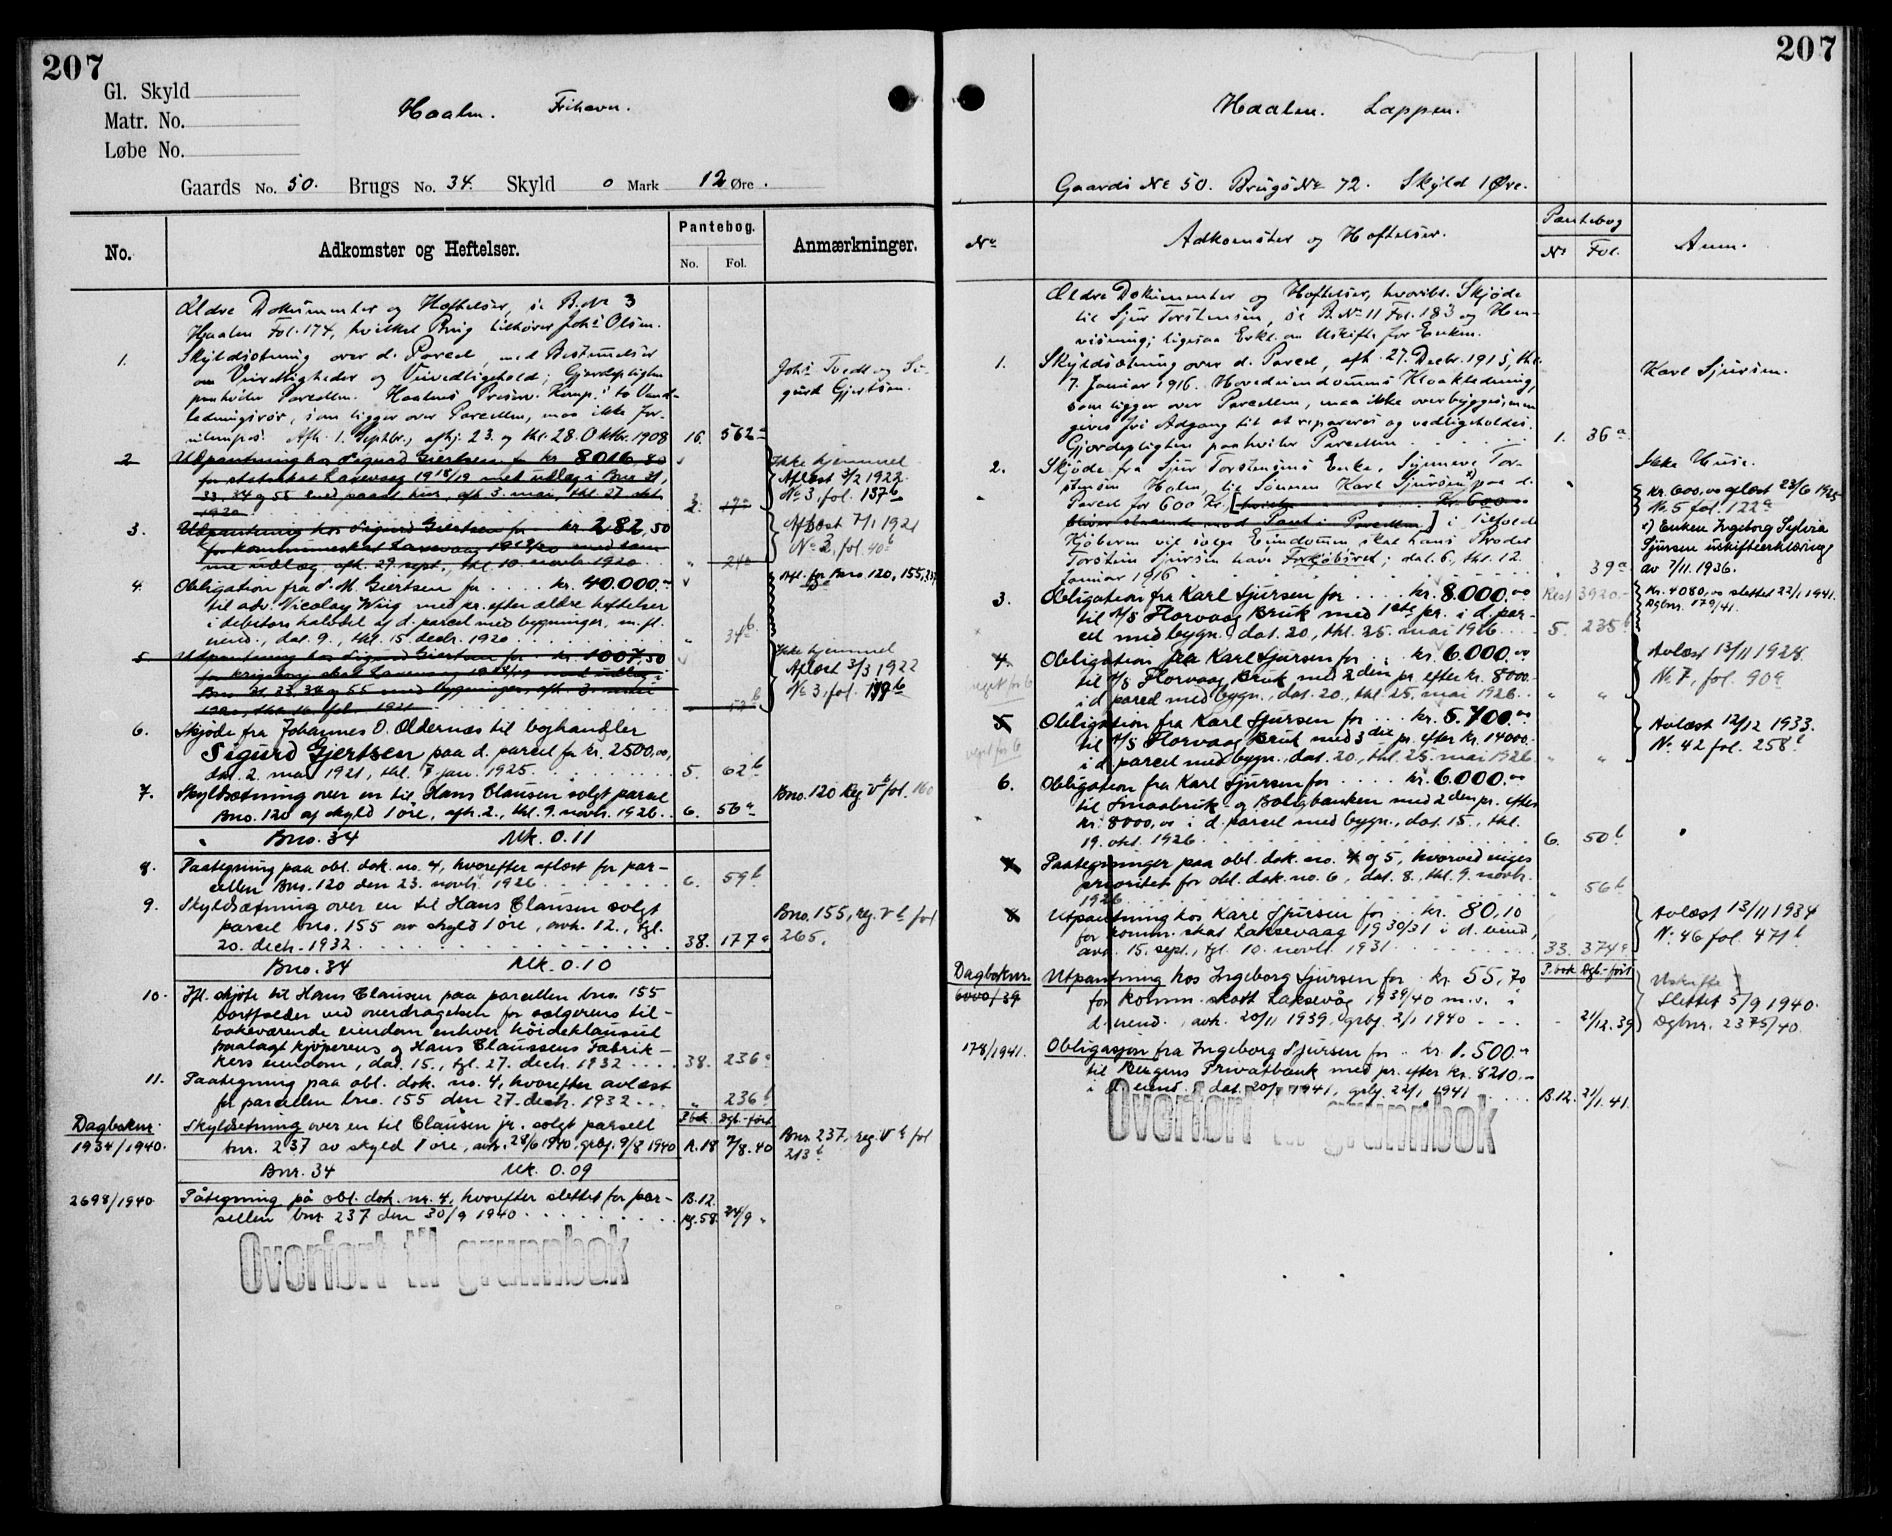 207
Gl. Skyld
Matr. No.
Løbe No.
Haalen. Frihavn.
Gaards No. 50. Brugs No. 34. Skyld 0 Mark 12 Øre.
No.
Adkomster og Heftelser.
Pantebog.
No. Fol.
Anmærkninger.
Ældre Dokumenter og Hæftelser, se B.No 3
Haalen Fol. 174, hvilket Brug tilhører Johs Olsen.
1. Skyldsætning over d. Parcel, med Bestemmelser
om Veirettigheder og Veivedligehold; Gjerdepligten
paahviler Parcellen. Haalens Preserv. Komp.s to Vand-
ledningsrør, som ligger over Parcellen, maa ikke for-
ulempes. Afh. 1. Septbr., afhj. 23. og thl. 28. Oktbr. 1908 16. 562a
Johs Tvedt og Si-
gurd Gjertsen.
2 Utpantning hos Sigurd Giertsen for kr. 8016,80
for statsskat Laxevaag 1918/19 med utlæg i Bno 31,
33, 34 og 55 med paast. hus, afh. 3. mai, thl. 27. okt.
1920 2. 17a
Ikke hjemmel
Aflæst 3/2 1922
No 3, fol. 137b
3. Utpantning hos Sigurd Giertsen for kr. 282,50
for kommuneskat Laxevaag 1919/20 med sam-
me utlæg, afh. 29. sept., thl. 10. novbr 1920 " 24a
Aflæst 7/1 1921
No 2, fol. 40b
4. Obligation fra S. M. Giertsen for kr. 40.000.-
til adv. Nicolay Wiig med pr. efter ældre heftelser
i debitors halvdel af d. parcel med bygninger, m. fl.
eiend., dat. 9., thl. 15. decbr. 1920 " 34b
Afl. for Bno. 120, 155, 237
5 Utpantning hos Sigurd Giertsen for kr. 1007,50
for krigskonj. skat Laxevaag 1918/19 med utlæg i
Bno 31, 33, 34 og 55 med bygninger, afh. 3. mai
Ikke hjemmel
Aflæst 3/3 1922
No 3, fol. 149b
6. Skjøde fra Johannes O. Oldernæs til boghandler
Sigurd Gjertsen paa d. parcel for kr. 2500,00,
dat. 2. mai 1921, thl. 7. jan. 1925 5. 62b
7. Skyldsætning over en til Hans Clausen solgt parcel
Bno. 120 af skyld 1 øre, afh. 2., thl. 9. novbr. 1926. 6. 56a
Bno. 120 Reg. Vb fol. 160
Bno. 34 Mk. 0.11
8. Paategning paa obl. dok. no. 4, hvorefter aflæst for par-
cellen Bno. 120 den 23. novbr. 1926 6. 59b
9. Skyldsætning over en til Hans Clausen solgt
parcel bno. 155 av skyld 1 øre, avh. 12., tgl.
20. decbr. 1932 38. 177a
Bno. 155, reg. Vb fol
265.
Bno. 34 Mk. 0.10
10. Ifl. skjøte til Hans Clausen paa parcellen bno. 155
bortfalder ved overdragelsen for sælgerens til-
bakeværende eiendom enhver høideklausul
paalagt kjøperens og Hans Claussens Fabrik-
kers eiendom, dat. 15., tgl. 27. decbr. 1932 38. 236a
11. Paategning paa obl. dok. no. 4, hvorefter avlæst
for parcellen bno. 155 den 27. decbr. 1932 " 236b
Dagboknr. P.bok Dgb.-ført
1934/1940. Skyldsetning over en til Clausen jr. solgt parsell
bnr. 237 av skyld 1 øre, avh. 28/6 1940, grbj. 9/8 1940 A.18 7/8.40
Bnr. 237, reg. Vb fol
213b
Bnr. 34 Mk. 0.09
2698/1940 Påtegning på obl. dok. nr. 4, hvorefter slettet for par-
sellen bnr 237 den 30/9 1940 B.12. pg.58. 24/9 "
Overført til grunnbok
207
Haalen. Lappen.
Gaards No 50. Brugs No 72. Skyld 1 Øre.
No
Adkomster og Heftelser.
Pantebog
No Fol.
Anm.
Ældre Dokumenter og Heftelser, hvoribl. Skjøde
til Sjur Torstensen, se B.No 11 Fol. 183 og Hen-
visning; ligesaa Erkl. om Uskifte for Enken.
1. Skyldsætning over d. Parcel, afh. 27. Decbr. 1915, thl.
7. Januar 1916. Hovedeiendommens Kloakledning,
som ligger over Parcellen, maa ikke overbygges, men
gives fri Adgang til at repareres og vedligeholdes.
Gjerdepligten paahviler Parcellen 1. 36a
Karl Sjursen.
2. Skjøde fra Sjur Torstensens Enke, Synneve Tor-
stensen Holen, til Sønnen Karl Sjursen x) paa d.
Parcel for 600 Kr. [hvoraf Kr. 600.00
bliver staaende mod Pant i Parcellen] i Tilfælde
Kjøberen vil sælge Eiendommen skal hans Broder
Torstein Sjursen have Forkjøbsret; dat. 6., thl. 12.
Januar 1916 " 39a
Ikke Huse.
Kr. 600,00 aflæst 23/6 1925
No 5 fol. 122a
x) Enken Ingeborg Sylvia
Sjursen uskifteerklæring
av 7/11. 1936.
3. Obligation fra Karl Sjursen for kr. 8.000.00
til A/S Florvaag Bruk med 1ste pr. i d. par-
cel med bygn., dat. 20., thl. 25. mai 1926 5. 235b
Rest 3920.-
Kr. 4080,00 slettet 22/1 1941.
Dgbnr. 179/41.
4. Obligation fra Karl Sjursen for kr. 6.000.00
til A/S Florvaag Bruk med 2den pr. efter kr. 8000.-
i d. parcel med bygn., dat. 20., thl. 25. mai 1926 " "
veget for 6
Avlæst 13/11 1928.
No 7, fol. 90a
5 Obligation fra Karl Sjursen for kr. 5.700.00
til A/S Florvaag Bruk med 3die pr. efter kr. 14000.-
i d. parcel med bygn., dat. 20., thl. 25. mai 1926 " "
veget for 6
Avlæst 12/12 1933.
No. 42 fol. 258b
6. Obligation fra Karl Sjursen for kr. 6.000.00
til Smaabruk- og Boligbanken med 2den pr. efter
kr. 8000,00 i d. parcel med bygn., dat. 15., thl.
19. okt. 1926 6. 50b
7 Paategninger paa obl. dok. no. 4 og 5, hvorved viges
prioritet for obl. dok. no. 6, dat. 8., thl. 9. novbr.
1926 " 56b
8 Utpantning hos Karl Sjursen for kr. 80,10
for komm. skat Laksevaag 1930/31 i d. eiend.,
avh. 15. sept., tgl. 10. novbr. 1931 33. 374a
Avlæst 13/11 1934
No. 46 fol. 471b
Dagboknr. P.bok Dgb.-ført
6000/39 Utpantning hos Ingeborg Sjursen for kr. 55,70
for komm. skatt Laksevåg 1939/40 m.v. i
d. eiend., avh. 20/11 1939, grbj. 2/1 1940 - 21/12.39
Uskifte
Slettet 5/9 1940.
Dgbnr. 2375/40.
178/1941. Obligasjon fra Ingeborg Sjursen for kr. 1.500.-
til Bergens Privatbank med pr. efter kr. 8210.-
i d. eiend., dat. 20/1 1941, grbj. 22/1 1941 B.12. 21/1.41.
Overført til grunnbok